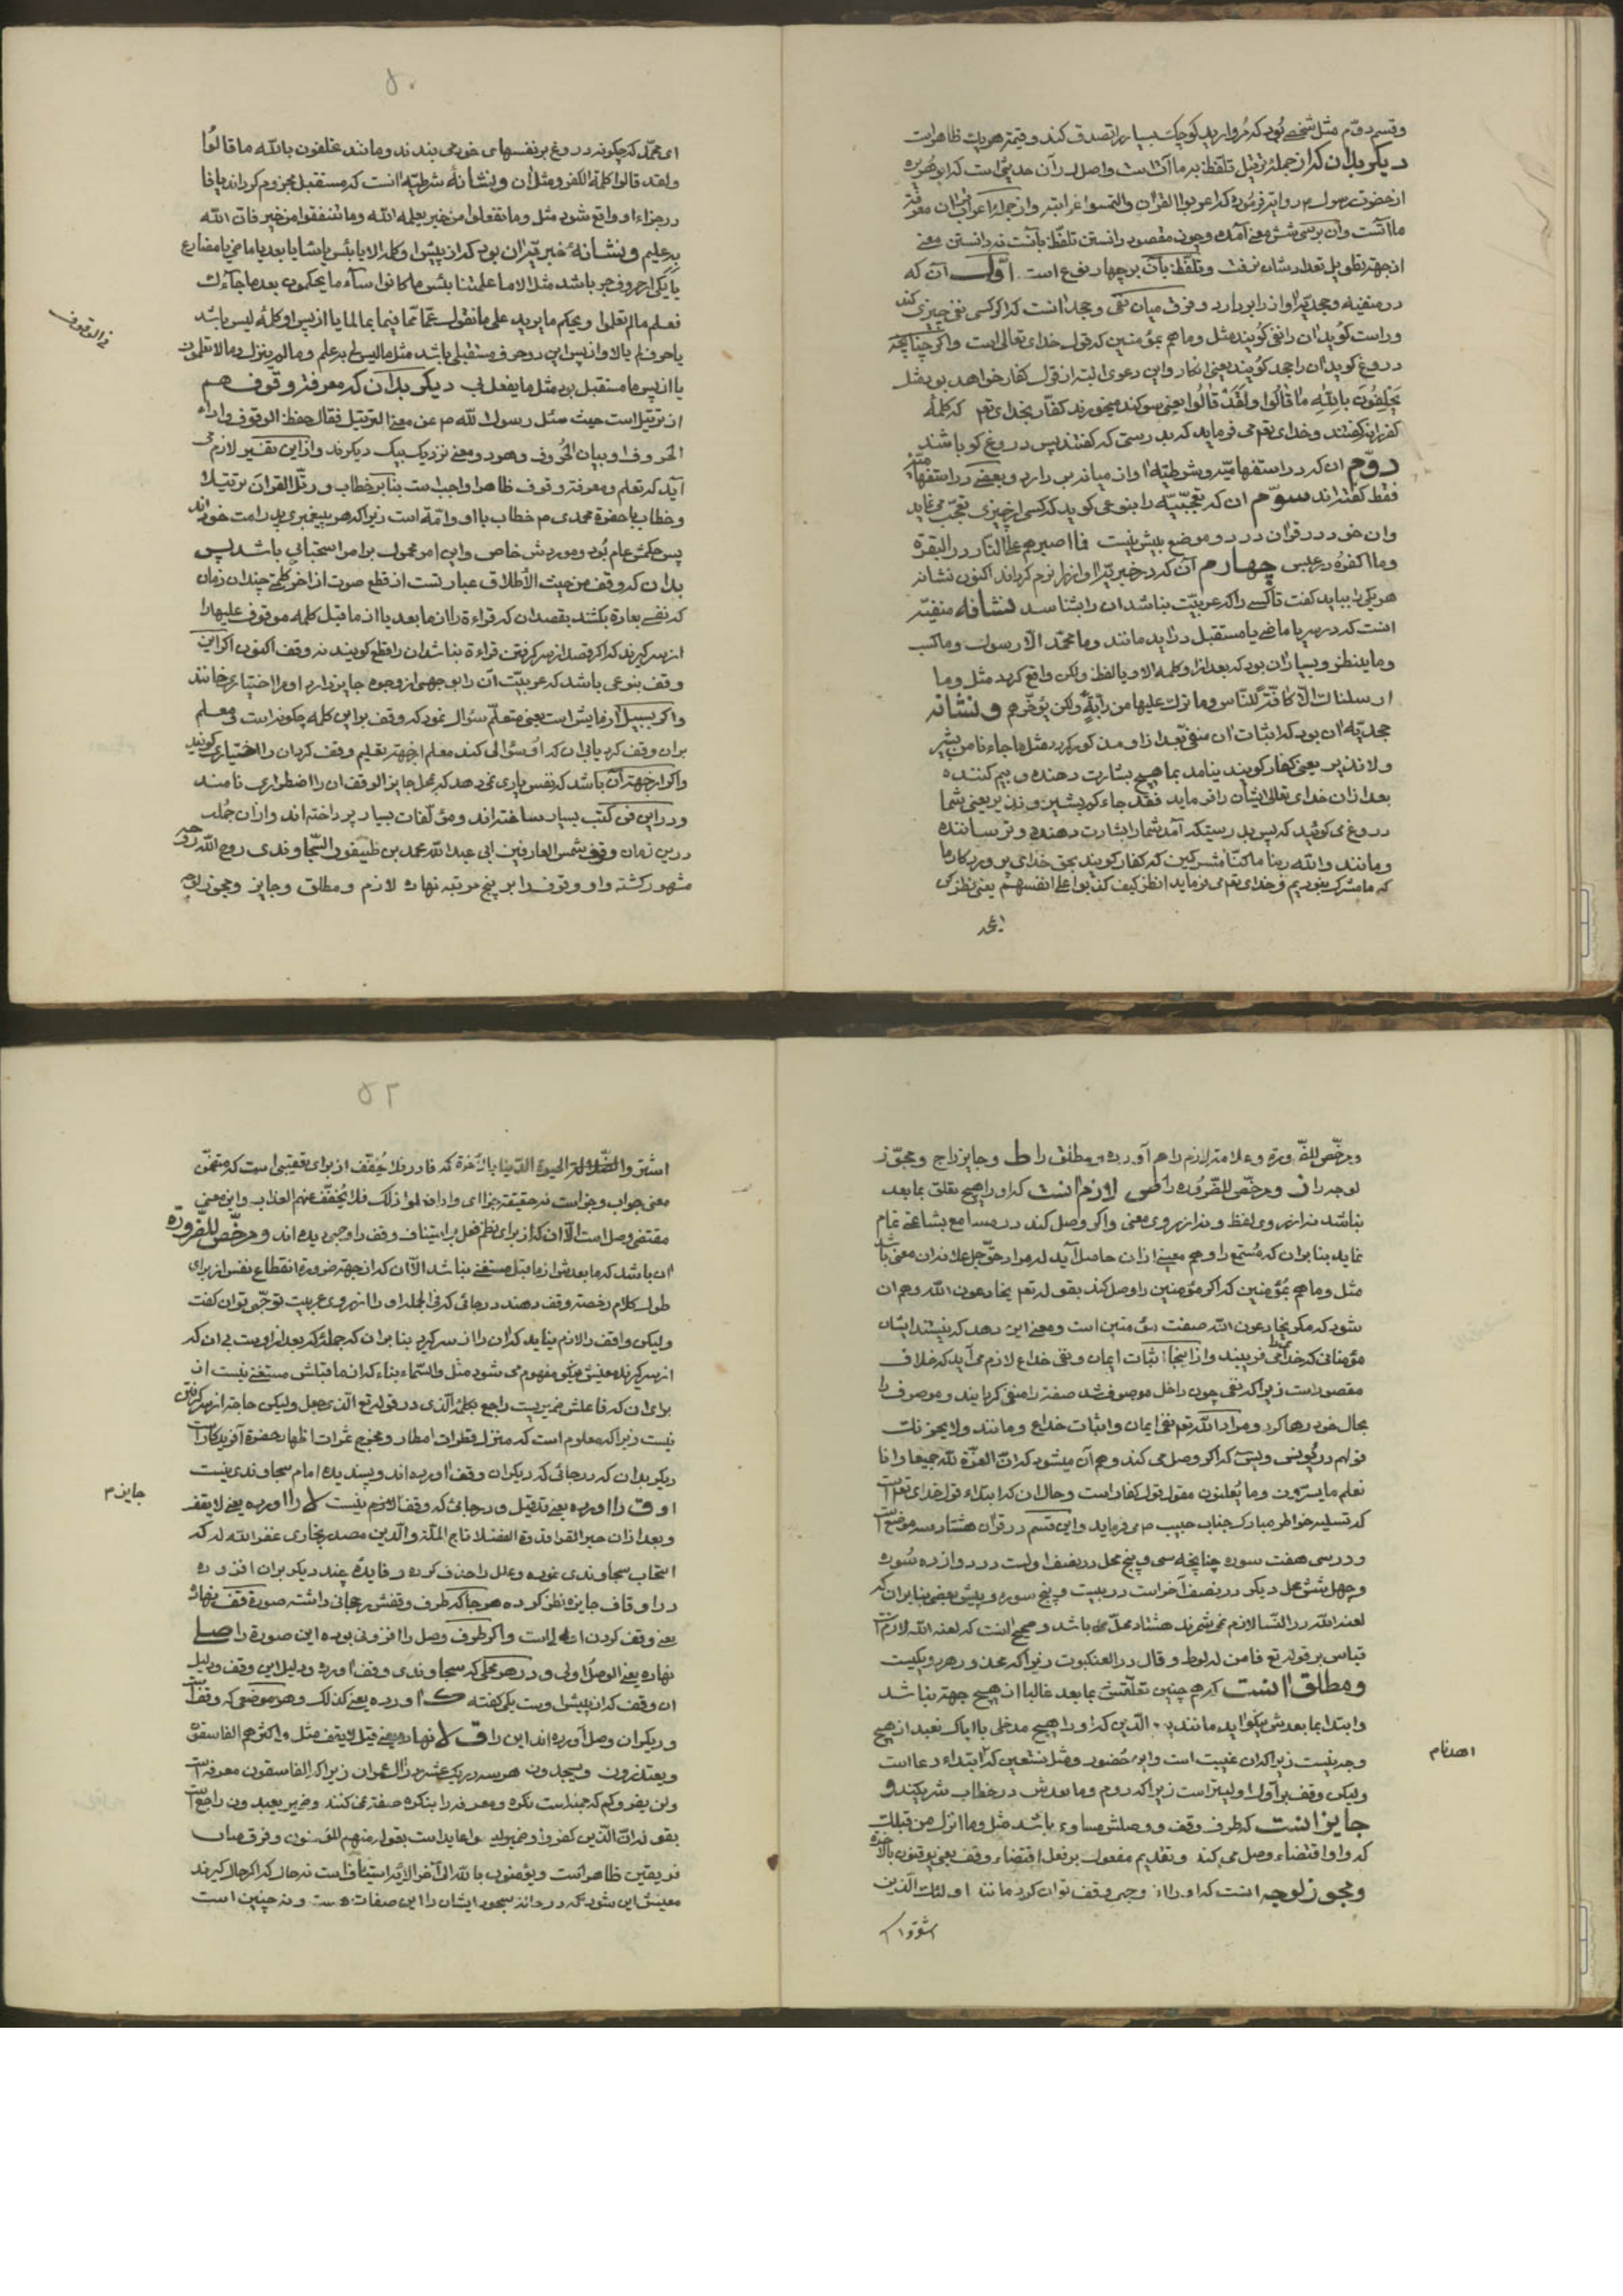 وقسم دوّم مثل شخصی بُود که مُروارید کوچک بسیار را تصدق کند و قیمتر هویت ظاهراست
دیکر بدان که از جملهٔ ترتیل تلفّظ به ما آتست واصل در آن حدیثی است که ابوهُریره
از حضرت رسول م روایة فرمُوده که اعربوا القرآن والتمسوا غرایبه واز جملهٔ اعراب قرآن معرفة
ما آتست وان بر سی شش معنی آمده وچون مقصود دانستن تلفّظ بآنست نه دانستن معنی
از جهة تطویل تعداد شان نرفت وتلفّظ بآن بر چهار نوع است اوّل آن که
در منفیه وجحدیّه اواز را بر دارد وفرق میان نفی وجحد آنست که اکر کسی نفی چیزی کند
وراست کُوید ان را نفی کُویند مثل وما هم بمؤمنین که قول خدای تعالی است واکر چنانچه
دروغ کوید آن را جحد کُویند یعنی انکار واین دعوی البته از قول کفار خواهد بود مثل
یَحْلِفُونَ بِاللّٰهِ مَا قَالُوا وَلَقَدْ قَالُوا یعنی سوکند میخورند کفّار بخدای تع که کلمهٔ
کفر را نکفتند وخدای تع می فرماید که بدرستی که کفتند پس دروغ کو باشند
دوّم ان که در استفهامیّه وشرطیّه اواز میانه بر دارد وبعضی در استفهامیّه
فقط کفته اند سوّم ان که تعجّبیّه را بنوعی کوید که کسی از چیزی تعجّب می نماید
وان خود در قرآن در دو موضع بیش نیست فما اصبرهم علی النّار در البقرة
وما اکفره در عبس چهارم آن که در خبریّه اواز را نرم کرداند اکنون نشانه
هر یکی را بباید کفت تا کسی را که عربیّت نباشد ان را بشناسد نشانهٔ منفیّه
انست که در سر یا ماضی یا مستقبل در اید مانند وما محمّد الّا رسول وما کسب
وما ینطق وبسیار ان بود که بعد از او کلمه الا ویا لفظ ولکن واقع کردد مثل وما
ارسلناك الّا کافّة للنّاس وما ترك علیها من دابّةٍ ولکن یؤخّرهم ونشانهٔ
جحدیّه ان بود که اثبات ان منفی بعد از او مذکور کردد مثل ما جاءنا من بشیر
ولا نذیر یعنی کفار کویند نیامد بما هیچ بشارت دهنده وبیم کننده
بعد از ان خدای تعالی ایشان را فرماید فقد جاءکم بشیر ونذیر یعنی شما
دروغ می کوئید که پس بدرستیکه آمد شما را بشارت دهنده وترساننده
ومانند والله ربنا ما کنّا مشرکین که کفار کویند بحق خدای پروردکار ما
که ما مشرک نبودیم وخدای تع می فرماید انظر کیف کذبوا علی انفسهم یعنی نظر کن
ای محمّد
۵۰
ای محمّد که چکونه دروغ بر نفسهای خود می بندند ومانند یحلفون بالله ما قالُوا
ولقد قالوا کلمة الکفر ومثل ان ونشانهٔ شرطیّه انست که مستقبل مجزوم کرداند یا فا
در جزاء او واقع شود مثل وما تفعلوا من خیر یعلمه الله وما تنفقوا من خیر فان الله
به علیم ونشانهٔ خبریّه ان بود که از پیش او کلمه الا یا بئس یا شا یا بعد یا ماضی یا مضارع
یا یکی از حروف جر باشد مثل الا ما علمتنا بئس ما کانوا ساء ما یحکمون بعد ما جاءك
فعلم ما لم تعلموا ویحکم ما یرید علی ما نقول عمّا ممّا فیما بما لما یا از پس او کلمهٔ لیس باشد
یا حرف لم یا لا واز پس این دو حرف مستقبلی باشد مثل ما لیس لی به علم وما لم ینزل وما لا تعلمون
یا از پس ما مستقبل بود مثل ما یفعل بی دیکر بدان که معرفة وقوف هم
از ترتیل است حیث سئل رسول الله م عن معنی الترتیل فقال حفظ الوقوف واداء
الحروف او بیان الحُروف وهر دو معنی نزدیک بیک دیکرند واز این تفسیر لازم می
آید که تعلم ومعرفة وقوف ظاهرا واجب است بنا بر خطاب ورتّل القرآنَ ترتیلا
وخطاب با حضرة محمدی م خطاب با او وامّة است زیرا که هر پیغمبری پدر امت خود اند
پس حکمش عام بُود وموردش خاص واین امر محمول بر امر استحبابی باشد پس
بدان که وقف من حیث الاطلاق عبارتست از قطع صوت از اخر کلمة چندان زمان
که نفسی بعادة بکشند بقصد ان که قراءة را از ما بعد یا از ما قبل کلمه موقوف علیها را
از سر کیرند که اکر قصد از سر کرفتن قراءة نباشد ان را قطع کویند نه وقف اکنون اکر این
وقف بنوعی باشد که عربیّت آن را بوجهی از وجوه جایز دارد او را اختیاری خوانند
واکر بسبیل آزمایش است یعنی متعلّم سؤال نمود که وقف بر این کلمه چکونه است معلم
بر ان وقف کرد یا بی ان که او سؤالی کند معلم از جهة تعلیم وقف کرد ان را اختباری کویند
واکر از جهة آن باشد که نفس یاری نمی دهد که بمحل جایز الوقف ان را اضطراری نامند
ودر این فن کتب بسیار ساخته اند ومؤلّفات بسیار پرداخته اند واز ان جُمله
درین زمان وقوف شمس العارفین ابی عبد الله محمد بن طیفور السّجاوندی روح الله روحه
مشهور کشته واو وقوف را بر پنج مرتبه نهاده لازم ومطلق وجایز ومجوز لوجه
فی الوقوف
ومرخّص للضّرورة وعلامة لازم را م آورده ومطلق را ط وجایز را ج ومجوّز
لوجه را ز ومرخّص للضّرُوره را ص لازم انست که او را هیچ تعلق بما بعد
نباشد نه از روی لفظ ونه از روی معنی واکر وصل کند در مسامع بشاعتی تمام
نماید بنا بر ان که مُستمع را وهم معنیی از ان حاصل آید که مراد حقّ جلّ وعلا نه ان معنی باشد
مثل وما هم بمُؤمنین که اکر مؤمنین را وصل کند بقوله تع یخادعون الله وهم ان
شود که مکر یخادعون الله صفت مؤمنین است ومعنی این دهد که نیستند ایشان
مؤمنانی که خدای را می فریبند واز اینجا اثبات ایمان ونفی خداع لازم می آید که خلاف
مقصود است زیرا که نفی چون داخل موصوف شد صفة را منفی کردایند وموصوف را
بحال خود رها کرد ومراد الله تع نفی ایمان واثبات خداع ومانند ولا یحزنك
قولهم در یُونس ویس که اکر وصل می کند وهم آن میشود که انّ العزّة لله جمیعا وانا
نعلم ما یسرّون وما یُعلنون مقول قول کفار است وحال ان که ابتداء قول خدای تعالی است
که تسلیه خواطر مبارک جناب حبیب م می فرماید واین قسم در قرآن هشتاد سه موضع است
ودر سی هفت سوره چنانچه سی وپنج محل در نصف اولست در دوازده سُوره
وچهل شش محل دیکر در نصف آخر است در بیست وپنج سوره وپیش بعضی بنا بر ان که
لعنه الله در النّسا لازم نمی شمرند هشتاد محلّ می باشد وصحیح انست که لعنه الله لازم است
قیاس بر قوله تع فامن له لوط وقال در العنکبوت زیرا که محذور هر دو یکیست
ومطلق انست که هم چنین تعلّقش بما بعد غالبا از هیچ جهة نباشد
وابتدا بما بعدش نیکو اید مانند یوم الدّین که او را هیچ مدخلی با ایاک نعبد از هیچ
وجه نیست زیرا که ان غیبت است واین حُضور ومثل نستعین که ابتداء دعا است
ولیکن وقف بر اول اولیتر است زیرا که دوم وما بعدش در خطاب شریکند و
جایز انست که طرف وقف ووصلش مساوی باشد مثل وما انزل من قبلك
که واو اقتضاء وصل می کند وتقدیم مفعول بر فعل اقتضاء وقف یعنی یوقنون بالآخرة
ومجوز لوجه انست که او را از وجهی وقف توان کرد مانند اولئك الّذین
اشتروا
اهدنا م
۵۲
اشتروا الضّلالة الحیوة الدّنیا بالآخرة که فا در فلا یُخفّف از برای تعقیبی است که متضمّن
معنی جواب وجزا است نه حقیقة جزا ای واذا فعلوا ذلك فلا یُخفّف عنهم العذاب واین معنی
مقتضی وصل است الّا ان که از برای نظم فعل بر استیناف وقف را وجهی دیده اند ومرخّص للضّرورة
ان باشد که ما بعدش از ما قبل مستغنی نباشد الّا آن که از جهة ضرورة انقطاع نفس از برای
طول کلام رخصة وقف دهند در جائی که فی الجمله او را از روی عربیت توجّهی توان کفت
ولیکن واقف را لازم نیاید که ان را از سر کیرد بنا بر ان که جملهٔ که بعد از اوست بی ان که
از سر کیرند معنیش نیکو مفهوم می شود مثل والسّماء بناء که از ما قبلش مستغنی نیست از
برای ان که فاعلش ضمیریست راجع بکلمهٔ الّذی در قوله تع الّذی جعل ولیکن حاجة از سر کرفتن
نیست زیرا که معلوم است که منزل قطرات امطار ومخرج ثمرات اظهار حضرة آفریدکار است
دیکر بدان که در جائی که دیکران وقف اورده اند وپسندیده امام سجاوندی نیست
او ق را اورده یعنی قد قیل ودر جائی که وقف لازم نیست لا را اورده یعنی لا یقف
وبعد از ان حبر القرا قدوة الفضلا تاج الملّة والدّین مصدر بخاری غفر الله له که
انتخاب سجاوندی نموده وعلل را حذف کرده وفایدهٔ چند دیکر بر ان افزوده
در اوقاف جایزه نظر کرده هر جا که طرف وقفش رجحانی داشته صورة قف نهاده
یعنی وقف کردن اولی است واکر طرف وصل را افزونی بوده این صورة را صلے
نهاده یعنی الوصل اولی ودر هر محلی که سجاوندی وقف اورده ودلیل این وقف ودلیل
ان وقف که از پیش اوست یکی کفته ک اورده یعنی کذلک وهر موضعی که وقف است
ودیکران وصل آورده اند این را ق لا نهاده یعنی قیل لا یقف مثل واکثرهم الفاسقون
ویعتذرون ویسجدون هر سه در یک عشر در آل عمران زیرا که الفاسقون معرفه است
ولن یضروکم که جمله است نکره ومعرفه را بنکره صفة نمی کنند وضمیر یعتدون راجع است
بقوله انّ الّذین کفروا وضمیر لیسوا عاید است بقوله منهم المؤمنون وفرق میان
فریقین ظاهر است ویؤمنون بالله الی آخر الایة استینافست نه حال که اکر حال کیرند
معنیش این شود که در حالة سجود ایشان را این صفات هست ونه چنین است
جایز م